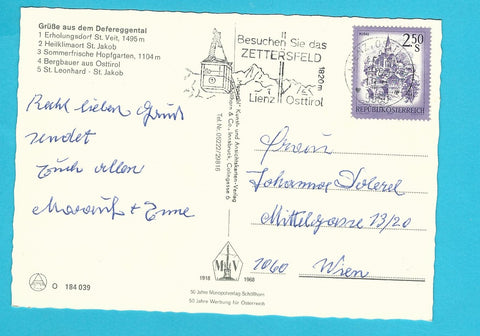 Grüße aus dem Defereggental
1 Erholungsdorf St. Veit, 1495 m
2 Heilklimaort St. Jakob
3 Sommerfrische Hopfgarten, 1104 m
4 Bergbauer aus Osttirol
5 St. Leonhard - St. Jakob
Besuchen Sie das
ZETTERSFELD
1820m
Lienz Osttirol
2.50
S
REPUBLIK ÖSTERREICH
Recht lieben Gruß
sendet
Euch allen
Kunst- und Ansichtskarten-Verlag
& Co., Innsbruck,
Tel. Nr. 05222/29816
Frau
Johanna
Mittelgasse 13/20
1060 Wien
1918 1968
50 Jahre Monopolverlag Schöllhorn
50 Jahre Werbung für Österreich
O 184 039